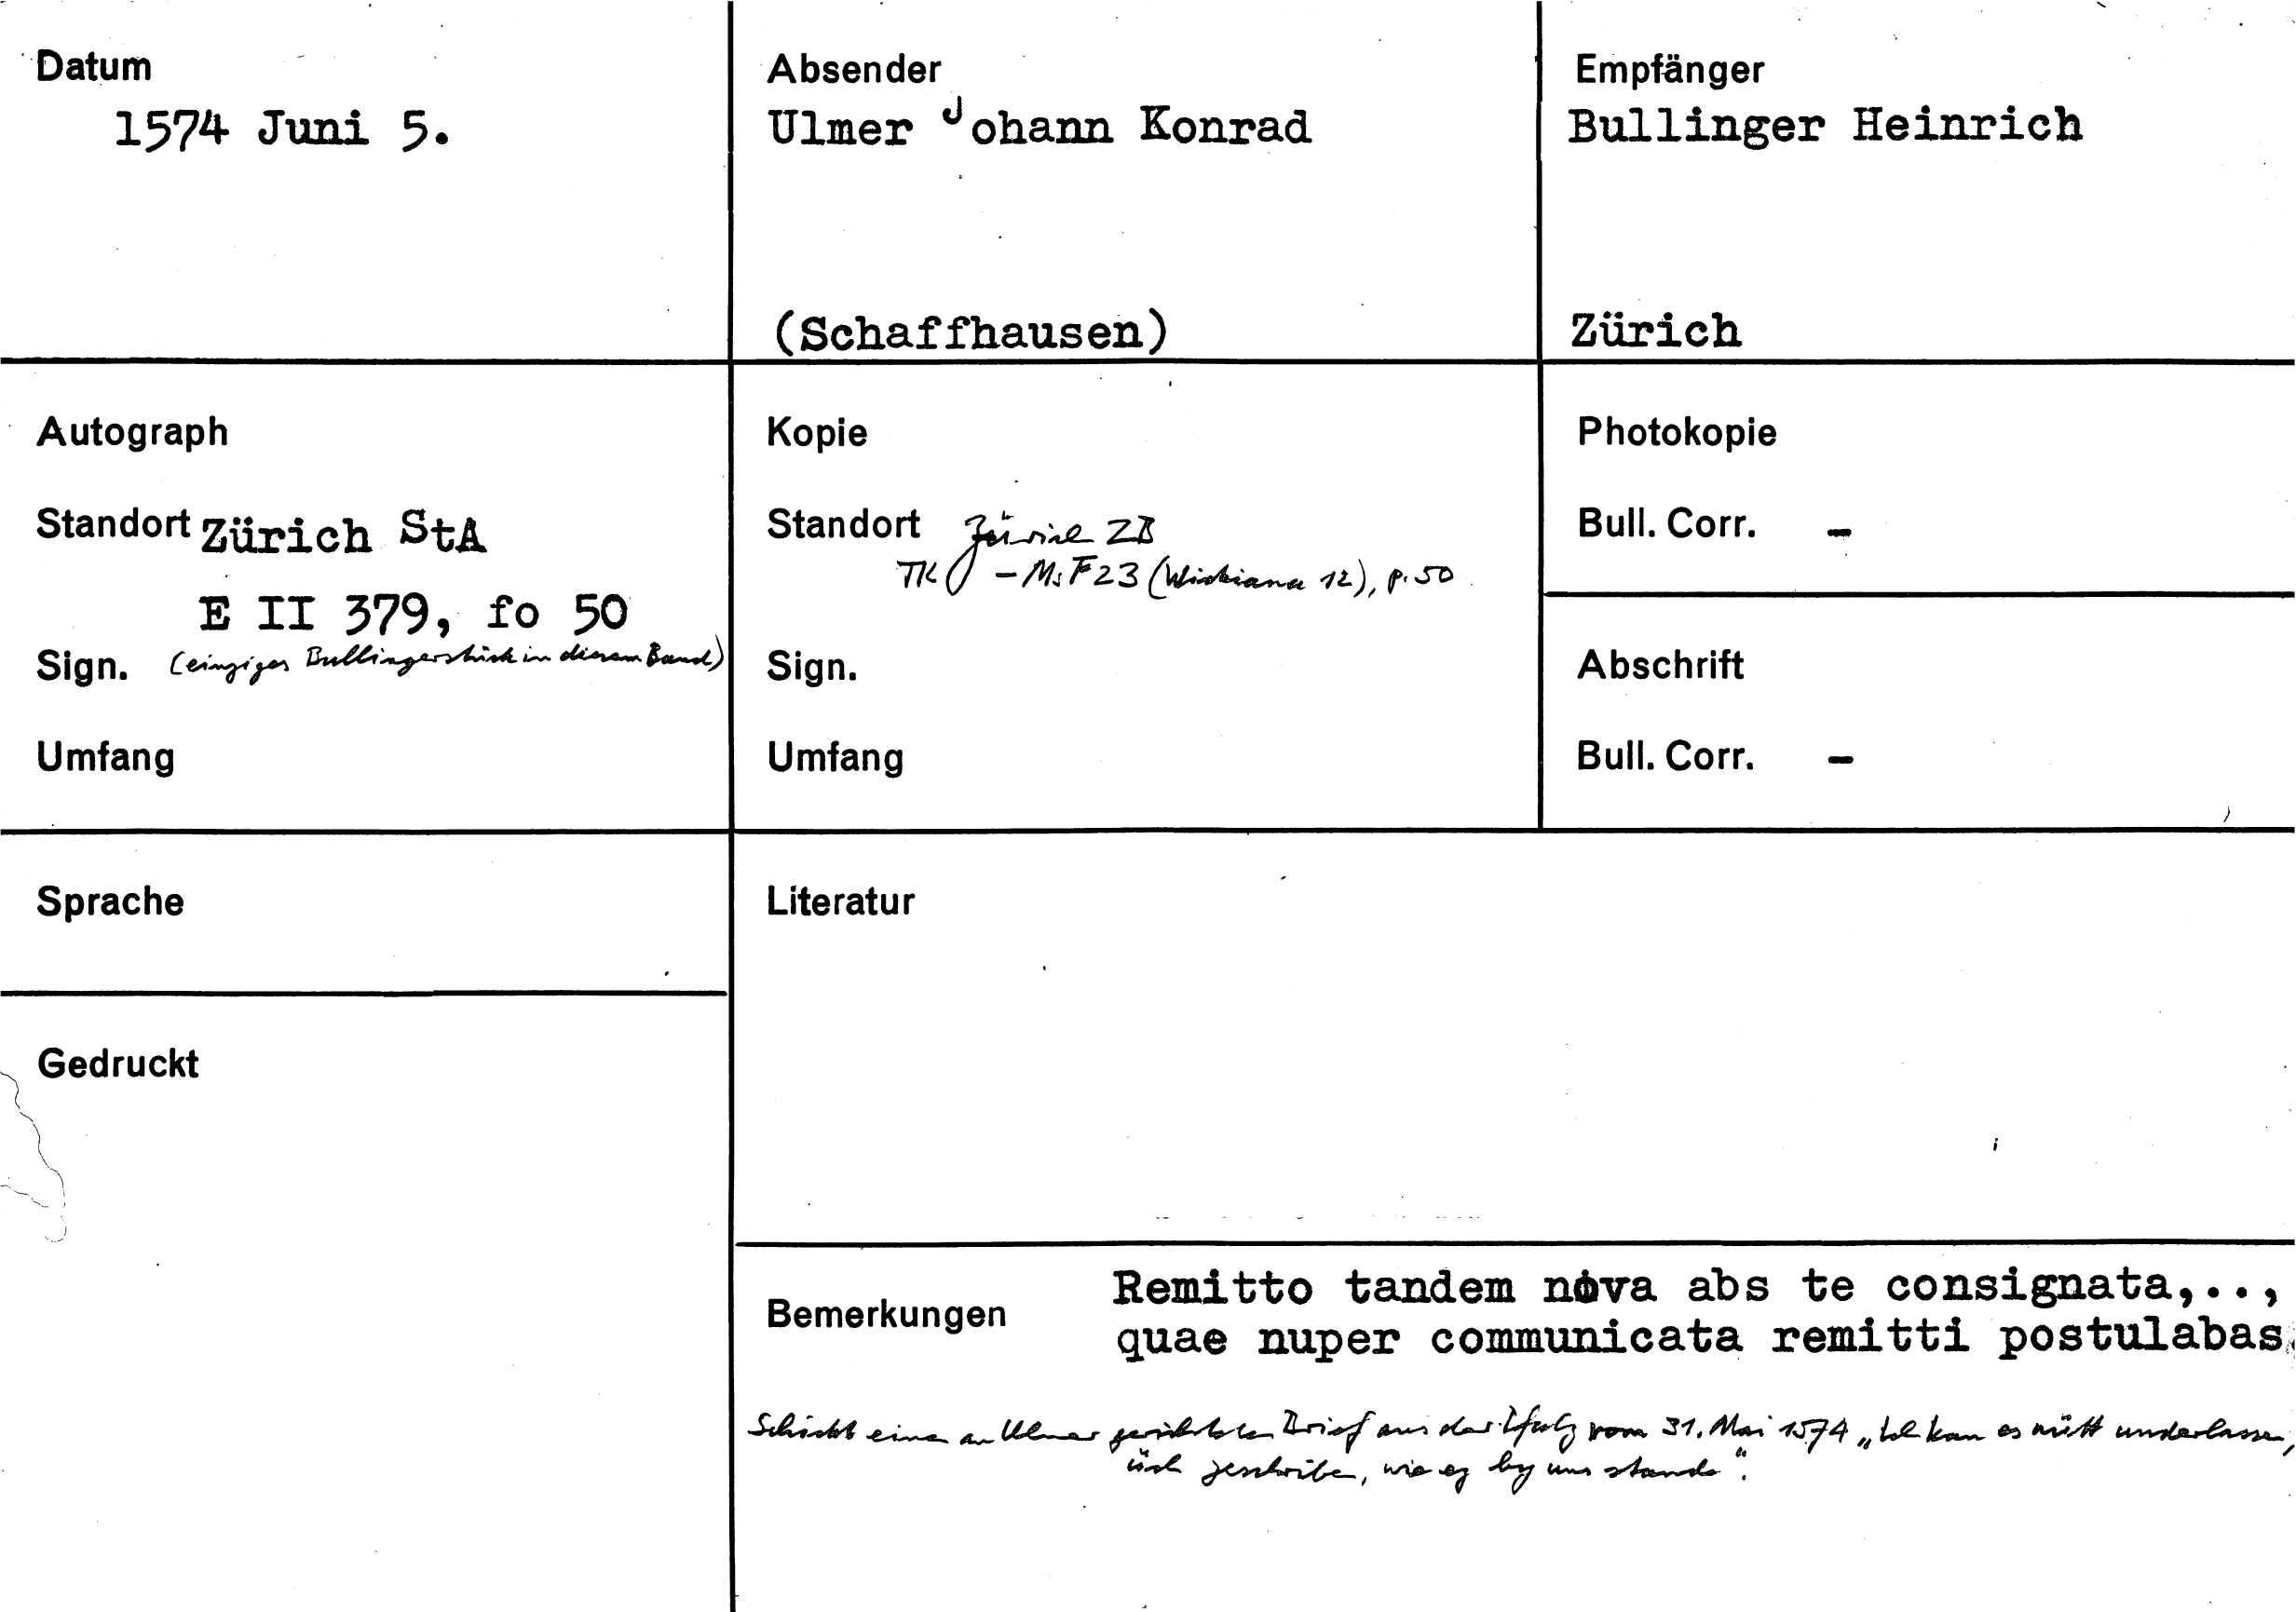 Datum
1574 Juni 5.
Absender
Ulmer Johann Konrad
(Schaffhausen)
Empfänger
Bullinger Heinrich
Zürich
Autograph
Standort Zürich StA
E II 379, fo 50
Sign. (einziges Bullingerstück in diesem Band)
Umfang
Kopie
Standort Zürich ZB
TK - Ms F 23 (Wickiana 12), p. 50
Sign.
Umfang
Photokopie
Bull. Corr. -
Abschrift
Bull. Corr. -
Sprache
Gedruckt
Literatur
Bemerkungen
Remitto tandem nova abs te consignata,..,
quae nuper communicata remitti postulabas.
Schickt einen an Ulmer gerichteten Brief aus der Pfalz vom 31. Mai 1574 „Ich kan es nütt underlassen,
üch geschriben, wie es by uns stande".